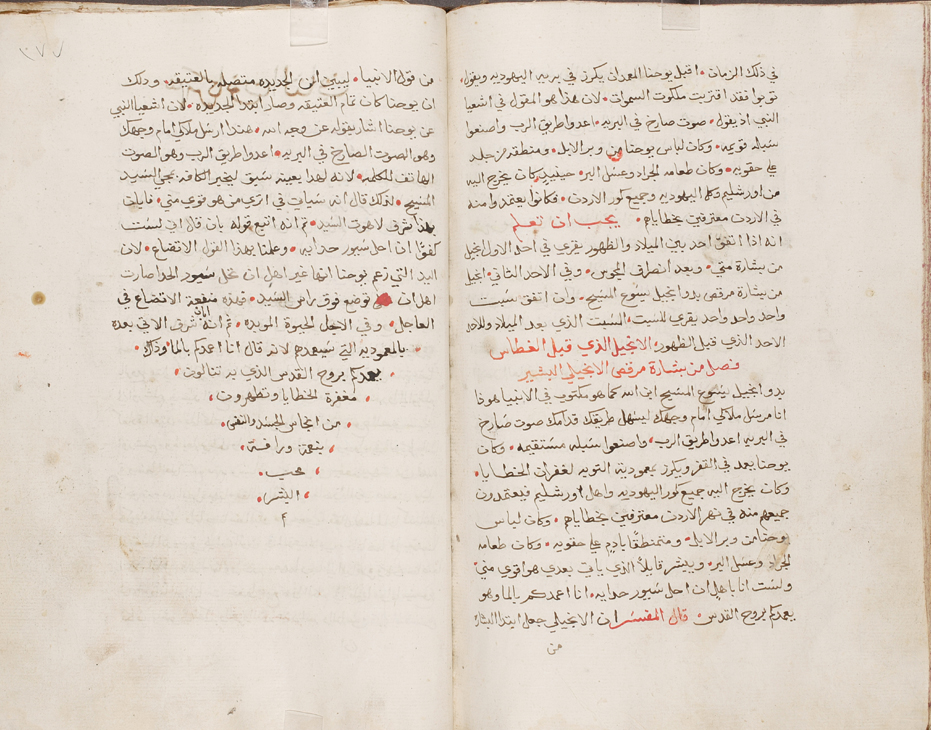 في ذلك الزمان • اقبل يوحنا المعمدان يكرز في بريه اليهوديه ويقول •
توبوا فقد اقتربت ملكوت السموات • لان هذا هو المقول في اشعيا
النبي اذ يقول • صوت صارخ في البريه • اعدوا طريق الرب واصنعوا
سبله قويمه • وكان لباس يوحنا من وبر الابل • ومنطقه من جلد
على حقويه • وكان طعامه الجراد وعسل البر • حينيد كان يخرج اليه
من اورشليم وكل اليهوديه وجميع كور الاردن • فكانوا يعتمدوا منه
في الاردن معترفين بخطاياهم • يجب ان تعلم
انه اذا اتفق احد بين الميلاد والظهور يقري في احد الاول انجيل
من بشارة متي • وبعد انصراف المجوس • وفي الاحد الثاني • انجيل
من بشارة مرقص بدو انجيل يسوع المسيح • وان اتفق سبت
واحد واحد واحد يقري للسبت • السبت الذي بعد الميلاد وللاحد
الاحد الذي قبل الظهور • الانجيل الذي قبل الغطاس
فصل من بشارة مرقص الانجيلي البشير
بدو انجيل يسوع المسيح ابن الله كما هو مكتوب في الانبيا هوذا
انا مرسل ملاكي امام وجهك ليسهل طريقك قدامك صوت صارخ
في البريه اعدوا طريق الرب • واصنعوا سبله مستقيمه • وكان
يوحنا يعمد في القفر ويكرز بمعموديه التوبه لغفران الخطايا •
وكان يخرج اليه جميع كور اليهوديه واهل اورشليم فيعتمدون
جميعهم منه في نهر الاردن معترفين بخطاياهم • وكان لباس
يوحنا من وبر الابل • ومتمنطقا بادم على حقويه • وكان طعامه
الجراد وعسل البر • ويبشر قايلا الذي ياتي بعدي هو اقوي مني •
ولست انا باهل ان احل سيور حدايه • انا اعمدكم بالما وهو
يعمدكم بروح القدس • قال المفسر ان الانجيلي جعل ابتدا البشاره
من
من قول الانبيا • ليبين ان الحديده متصله بالعتيقه • وذلك
ان يوحنا كان تمام العتيقه وصار ابتدا الحديده • لان اشعيا النبي
عن يوحنا اشار بقوله عن وجه الله • هندا ارسل ملاكي امام وجهك
وهو الصوت الصارخ في البريه • اعدوا طريق الرب وهو الصوت
الهاتف المكلمه • لانه لهدا بعينه سبق ليخبر الكافه بمجي السيد
المسيح • لذلك قال انه سياتي في اثري من هو قوي مني • فابان
بهدا شرف لاهوت السيد • ثم انه اتبع قوله بان قال اني لست
كفوا ان احل سيور حدايه • وعلمنا بهدا القول الاتضاع • لان
اليد التي زعم يوحنا انها غير اهل ان تحل سيور الحدا صارت
اهل ان توضع فوق راس السيد • فهده منفعة الاتضاع في
العاجل • وفي الاجل الحيوة الموبده • ثم انه ابان شرف الاتي بعده
• بالمعموديه التي سيعمدهم لانه قال انا اعمدكم بالما وذاك •
• يعمدكم بروح القدس الذي به تنالون •
• مغفرة الخطايا وتطهرون •
• من انجاس الجسد والنفس •
• بنعمة ورافة •
• محب •
• البشر •